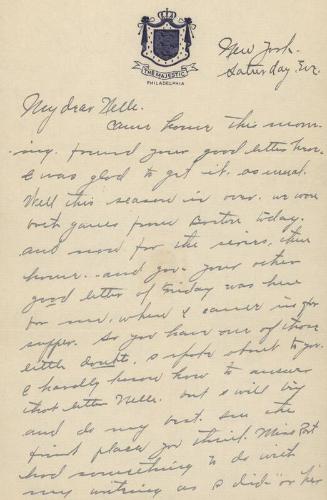 THE MAJESTIC
PHILADELPHIA
New York.
Saturday. Eve.
My dear Nelle.
Came home this morn-
ing. found your good letter here.
& was glad to get it, as usual.
Well this season is over. we won
both games from Boston today.
and now for the series, then
home. and you. your other
good letter of Friday was here
for me, when I came in for
supper. So you have one of those
little doubts. I spoke about to you.
I hardly know how to answer
that letter Nelle. but I will try
and do my best. in the
first place you think. Miss Post
had something to do with
my writing as I did. or her